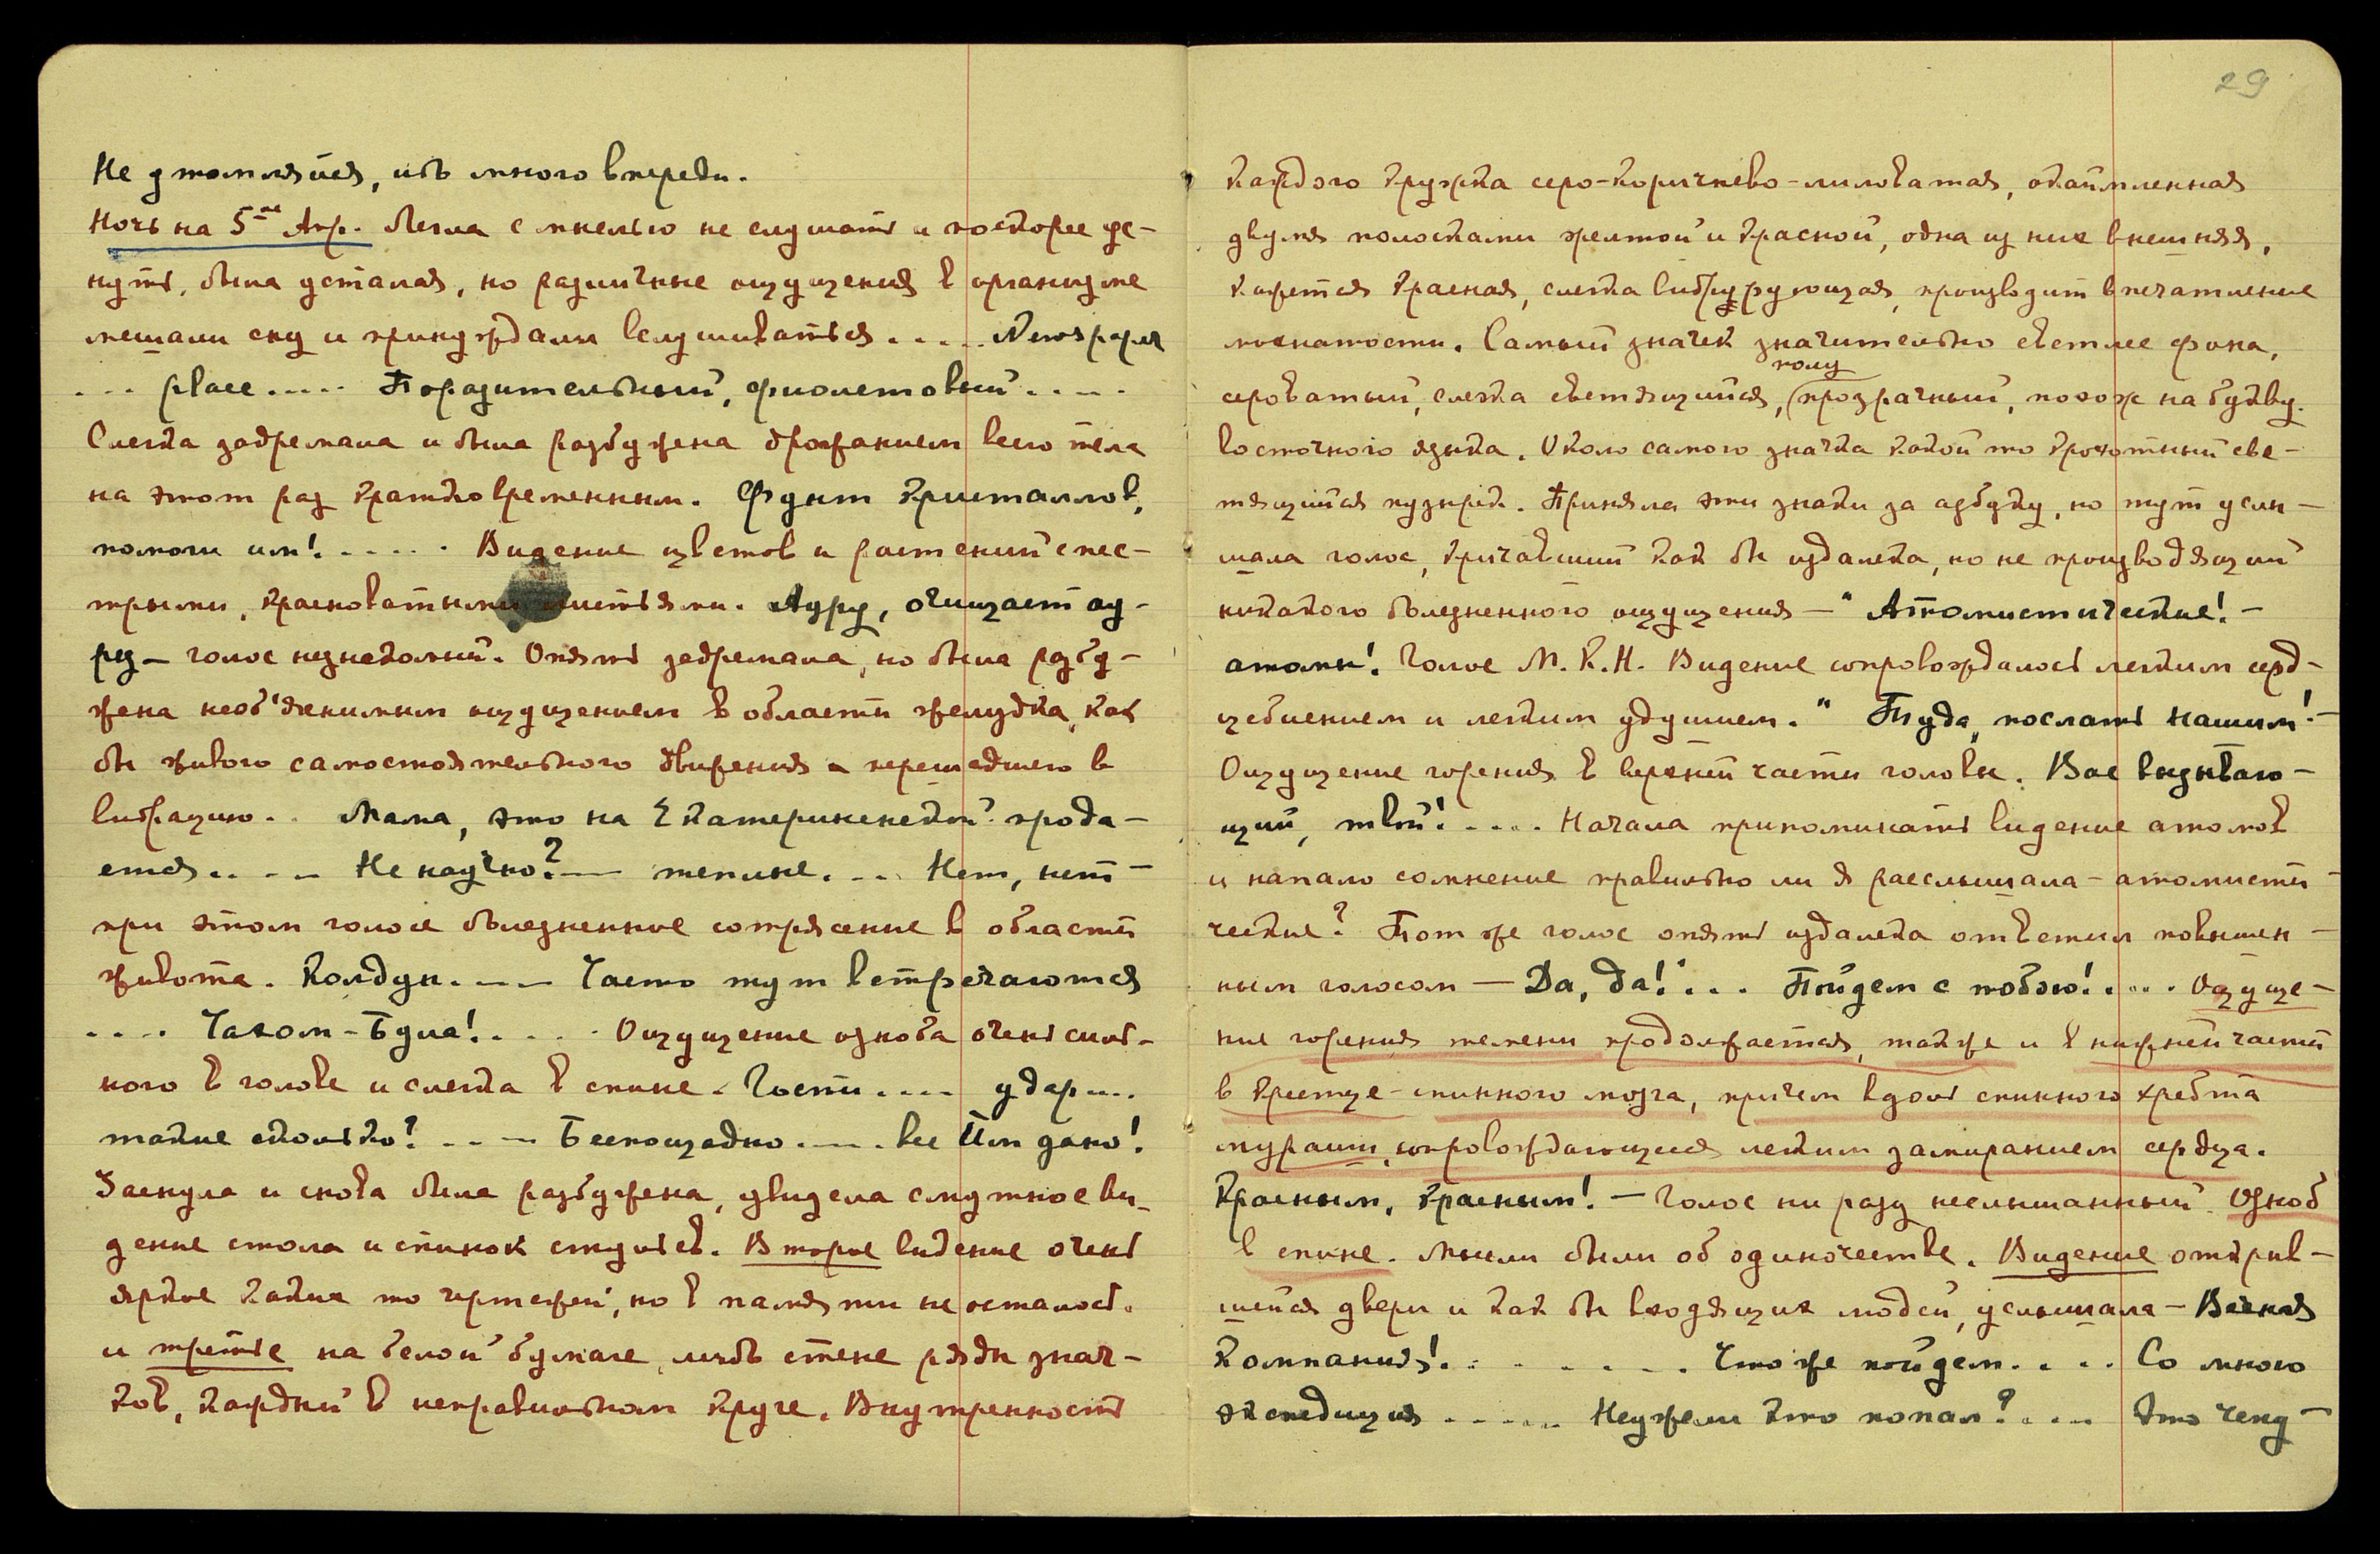 Не утомляйся, ибо много впереди.
Ночь на 5ое Апр. Легла с мыслью не слушать и поскорее ус-
нуть, была усталая, но различные ощущения в организме
мешали сну и принуждали вслушиваться ..... Newspaper
... place ..... Поразительный, фиолетовый .....
Слегка задремала и была разбужена дрожанием всего тела
на этот раз кратковременным. Фунт кристаллов,
помоги им! ..... Видение цветов и растений с пес-
трыми, красноватыми листьями. Ауру, очищает ау-
ру — голос незнакомый. Опять задремала, но была разбу-
жена необ'яснимым ощущением в области желудка, как
бы живого самостоятельного движения перешедшего в
вибрацию .. Мама, это на Екатерининской прода-
ется .. -- Не научно? — тепине. .. Нет, нет —
при этом голосе болезненное сотрясение в области
живота. Колдун. --- Часто тут встречаются
.... Чахом-Була! .... Ощущение озноба очень силь-
ного в голове и слегка в спине. Гости .... удар ...
такие сколько? .... Беспощадно .... все Им дано!
Заснула и снова была разбужена, увидела смутное ви-
дение стола и спинок стульев. Второе видение очень
яркое каких то чертежей, но в памяти не осталось.
и третье на белой бумаге либо стене ряды знач-
ков, каждый в неправильном круге. Внутренность
29
каждого кружка серо-коричнево-лиловатая, окаймленная
двумя полосками желтой и красной, одна из них внешняя,
кажется красная, слегка вибрирующая, производит впечатление
мохнатости. Самый значек значительно светлее фона,
сероватый, слегка светящийся, (полу прозрачный, похож на букву
восточного языка. Около самого значка какой то крохотный све-
тящийся пузырек. Приняла эти знаки за азбуку, но тут услы-
шала голос, кричавший как бы издалека, но не производящий
никакого болезненного ощущения — "Атомистические! —
атомы! Голос М. К. Н. Видение сопровождалось легким серд-
цебиением и легким удушием. " Туда, послать нашим! —
Ощущение горения в верхней части головы. Вас вызываю-
щий, твой! .... Начала припоминать видение атомов
и напало сомнение правильно ли я расслышала — атомисти-
ческие? Тот же голос опять издалека ответил повышен-
ным голосом — Да, да!" ... Пойдем с тобою! .... Ощуще-
ние горения темени продолжается, также и в нижней части
в крестце — спинного мозга, причем вдоль спинного хребта
мураши, сопровождающиеся легким замиранием сердца.
Красным, красным! — Голос ни разу неслышанный. Озноб
в спине. Мысли были об одиночестве. Видение открыв-
шейся двери и как бы входящих людей, услышала — Вечная
Компания! ....... Что же пойдем .... Со много
экспедиция ..... Неужели кто попал? .... Это чепу-